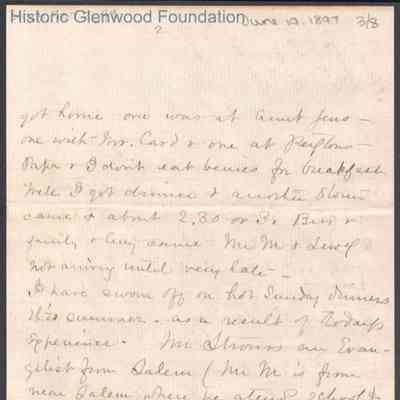 Historic Glenwood Foundation
June 19. 1897 3/8
2
got home one was at Aunt Jens -
one with Mrs. Card & one at
Papa & I don't eat berries for breakfast
Well I got dinner & another storm
came & about 2.30 or 3. Bros &
family & came Mr M &
not arriving until very late -
I have swore off on hot Sunday dinners
this summer. as a result of Todays
Experience. Mr our Evan-
gelist from Salem (Mr M is from
near Salem where he attend School &